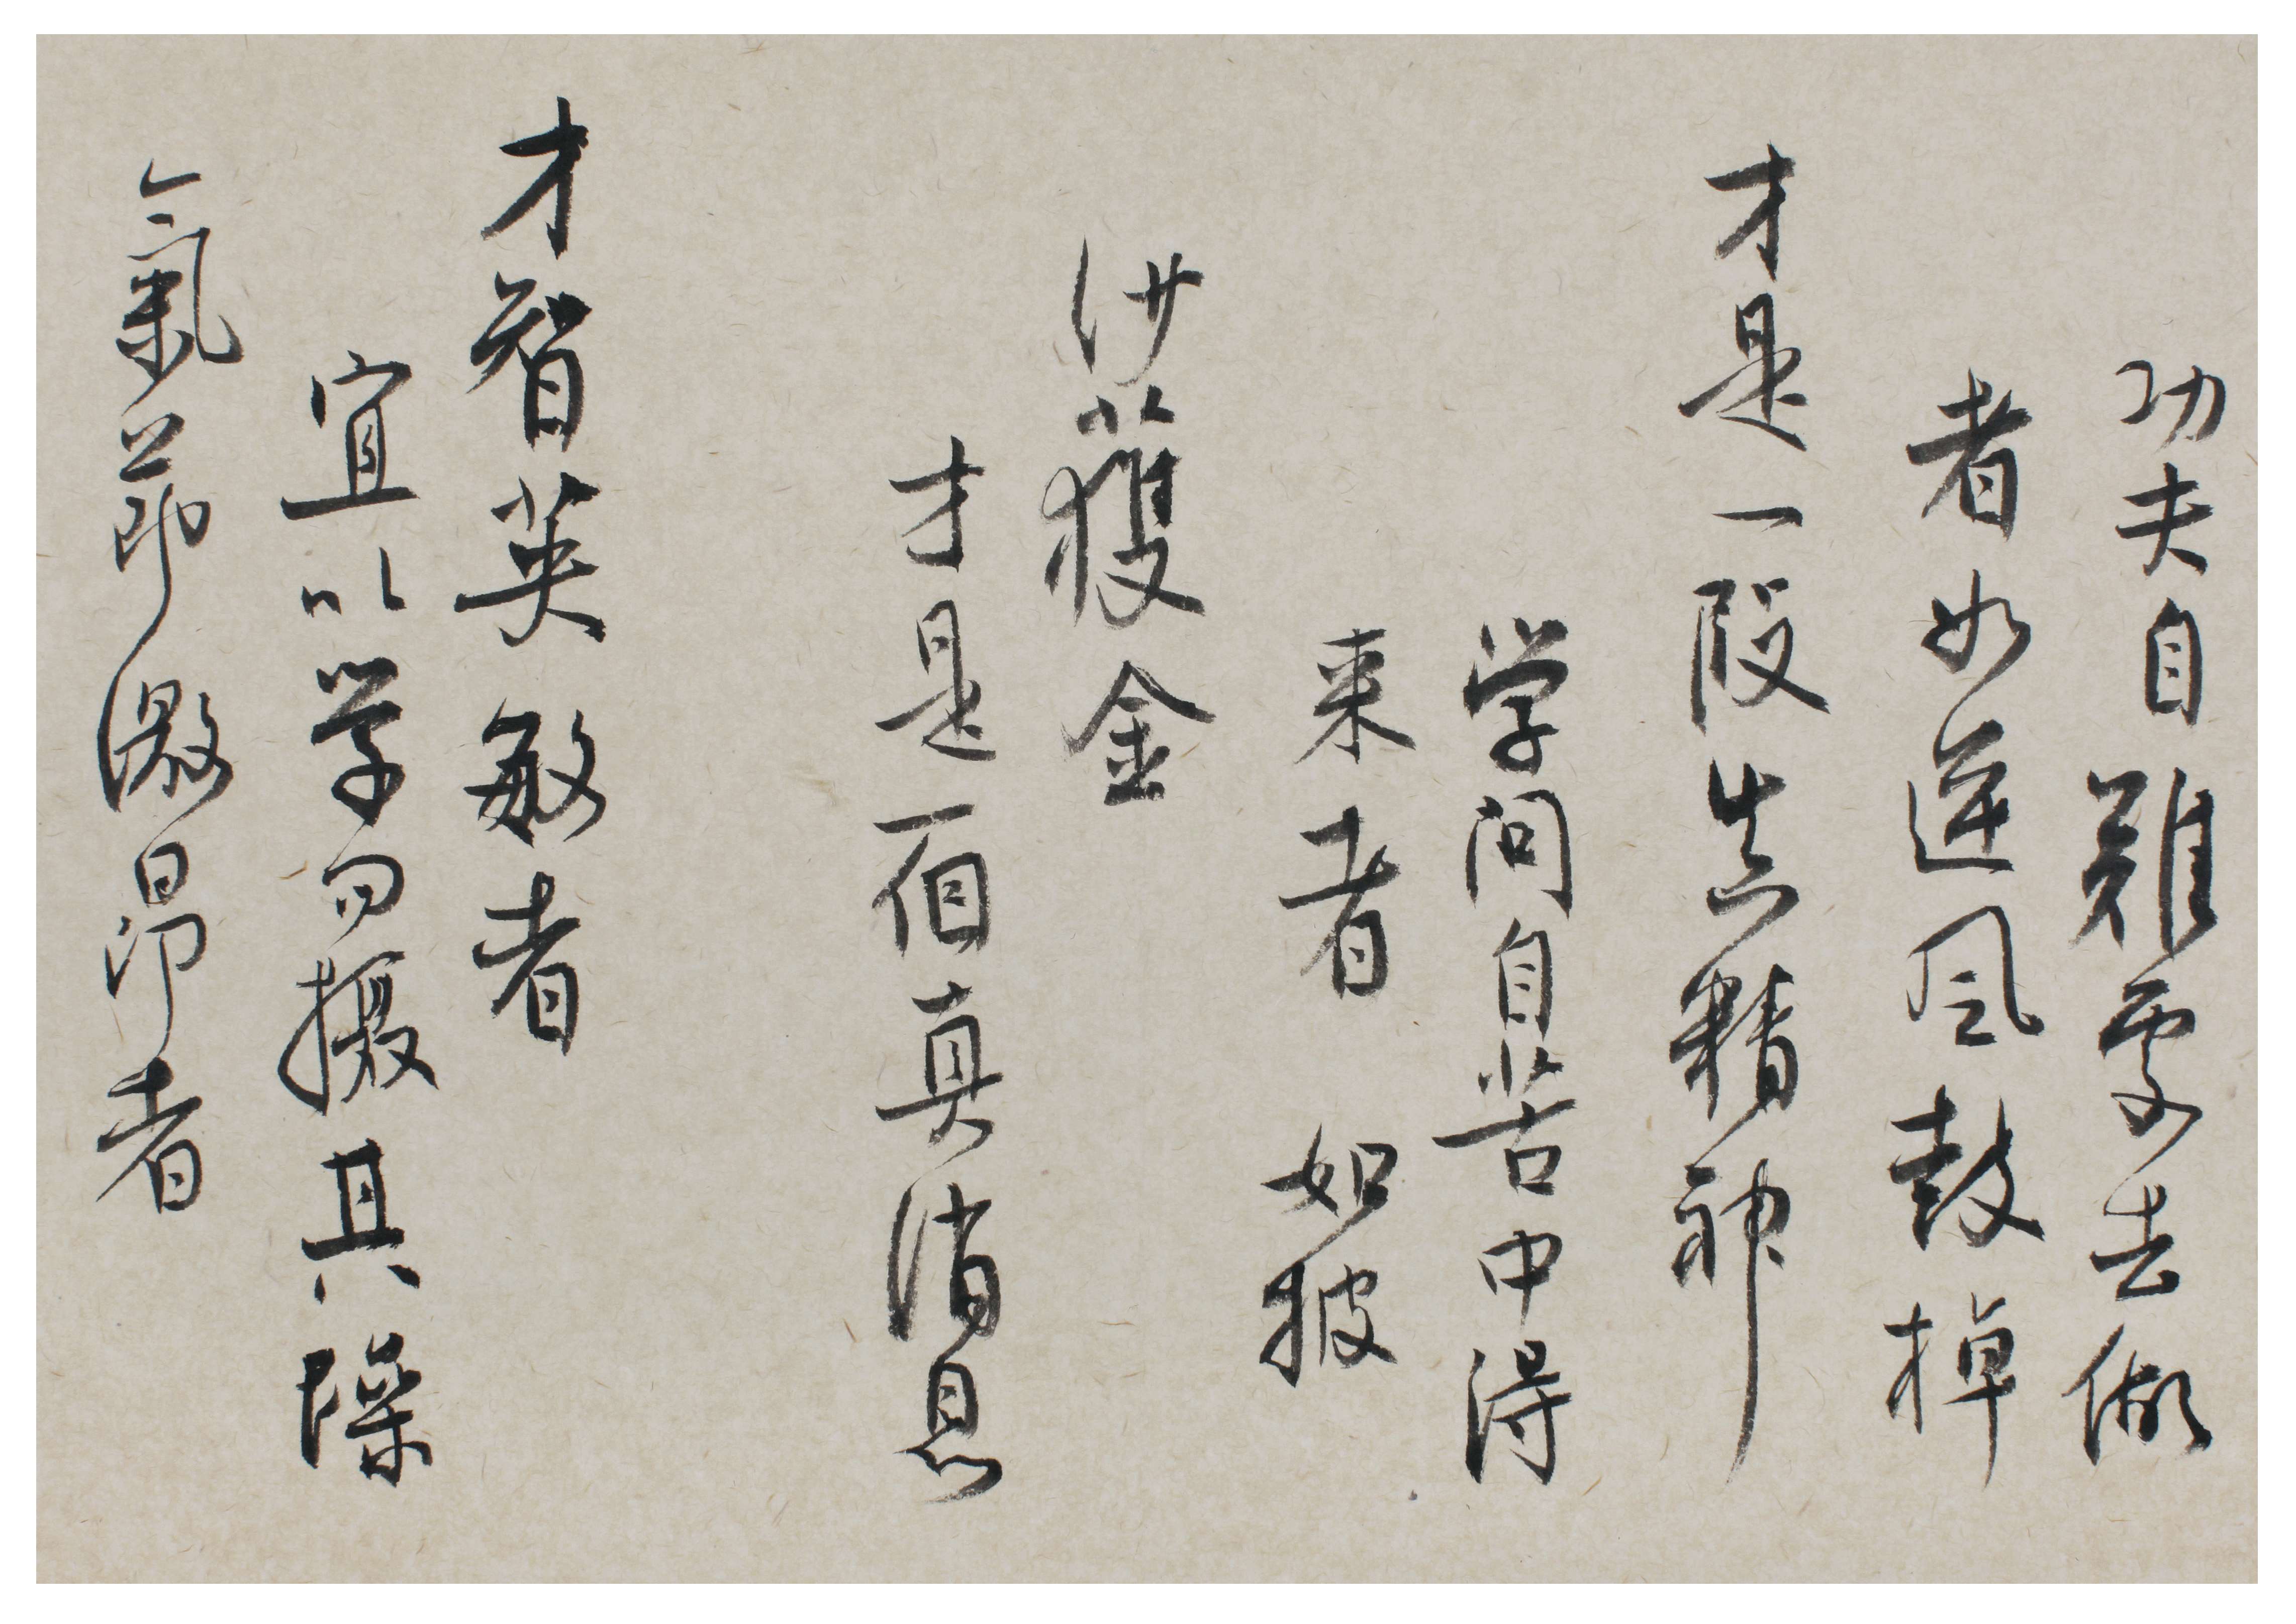 功夫自難處去做
者如逆風鼓棹
才是一段真精神
学问自苦中得
来者如披
沙獲金
才是一個真消息
才智英敏者
宜以学问攝其躁
氣節激昂者